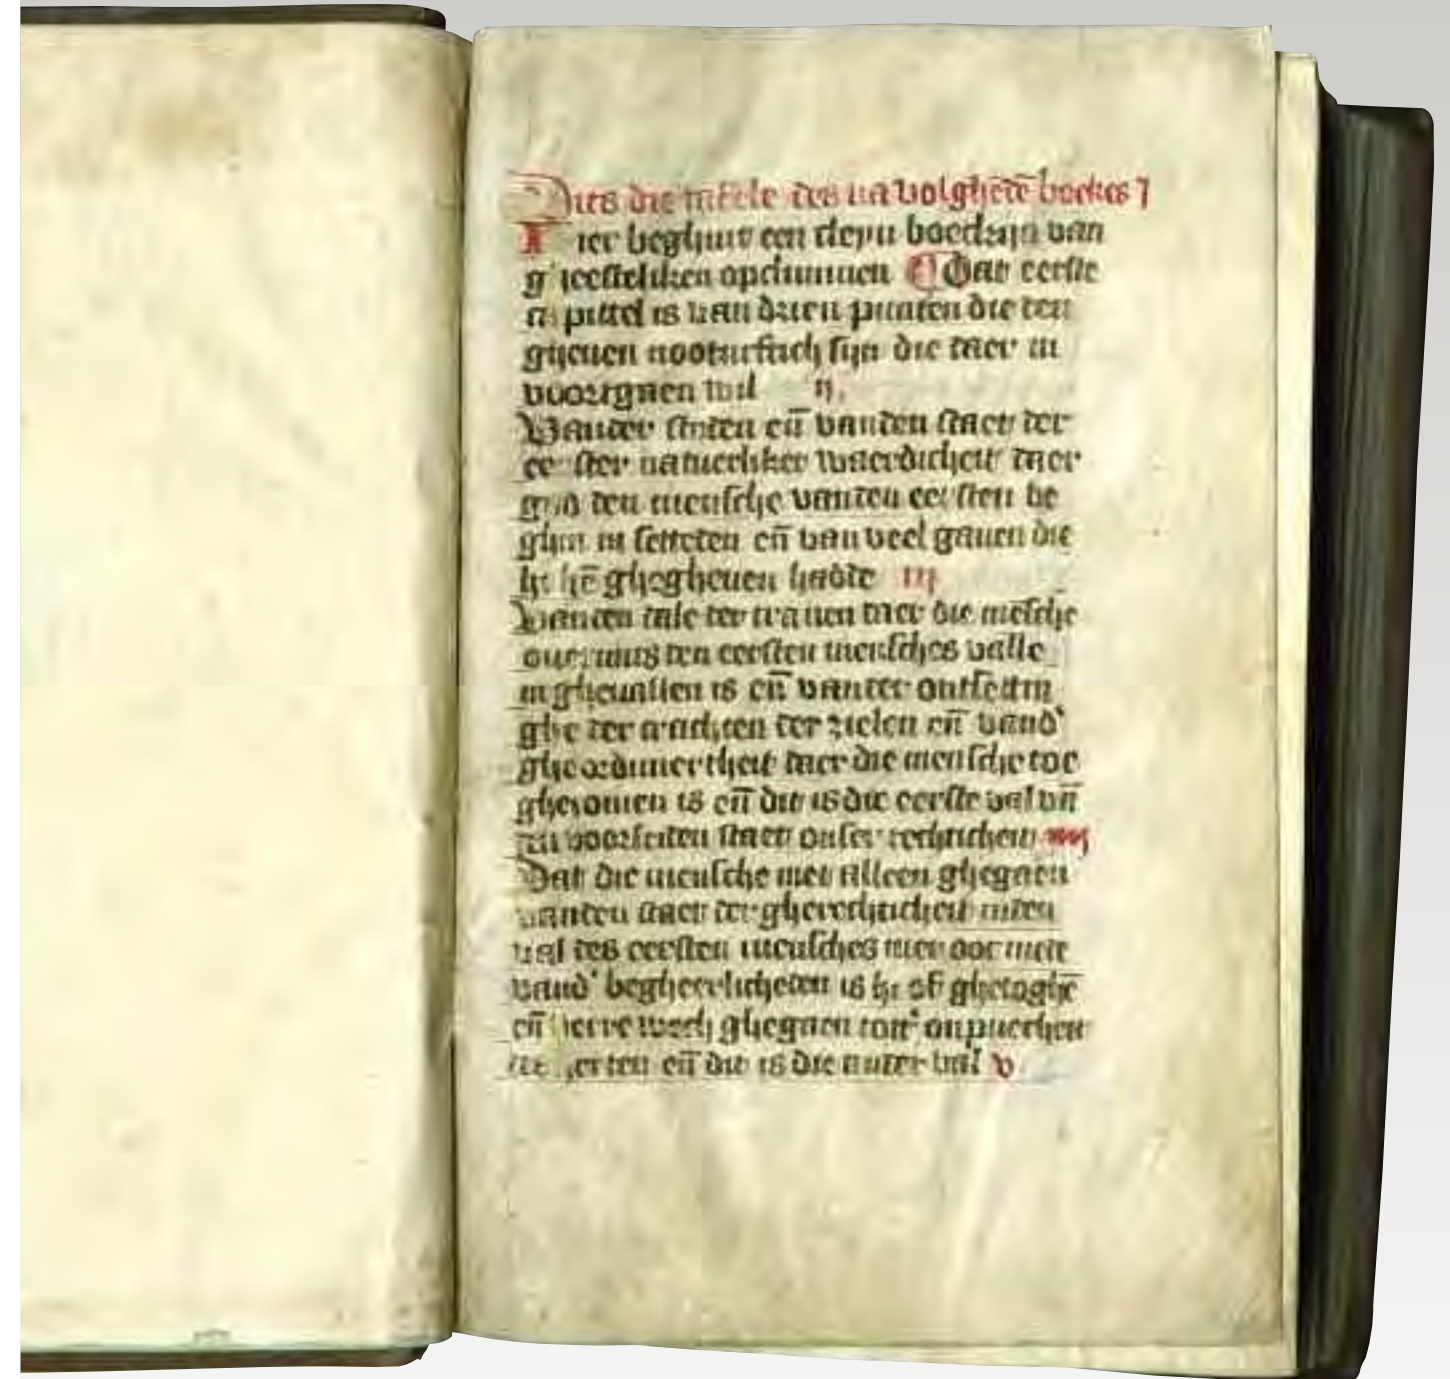 Dits die tafele des na volghēdē boekes J
Hier beghint een cleyn boecskijn van
gheesteliken opclimmen Dat eerste
capittel is van drien punten die den
ghenen nooturftich sijn die daer in
voortgaen wil ij.
Vander staten eñ vanden staet der
eerster natuerliker waerdicheit daer
god den mensche vanden eersten be
ghin in settede eñ van veel gauen die
hi hē ghegheuen hadde iij
Vanden dale der tranen daer die mēsche
ouermits den eersten menschen valle
in gheuallen is eñ vander ontsettin
ghe der crachten der zielen eñ vand'
gheordinertheit daer die mensche toe
ghecomen is eñ dit is die eerste val vā
den voorseiden staet onser rechticheit iiij
Dat die mensche niet alleen ghegaen
vanden staet der gherechticheit mitten
val des eersten menschen mer ooc mede
vand' begheerlicheden is hi of ghetoghē
eñ verre wech ghegaen tott' onpuerheit
der herten eñ dit is die ander val v